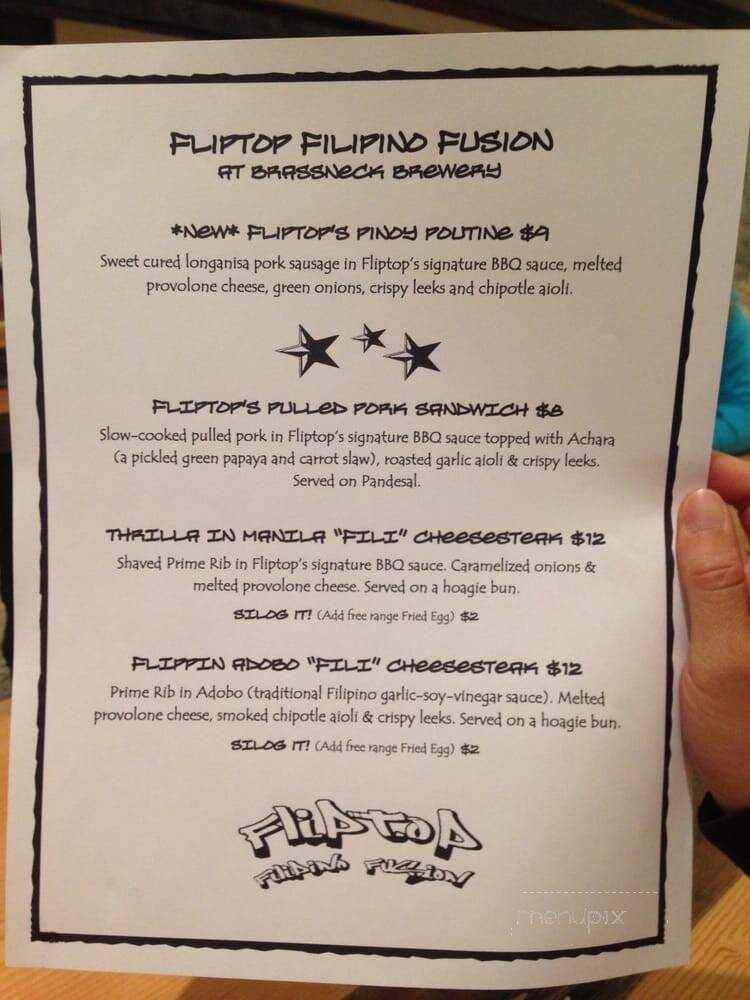 FLIPTOP FILIPINO FUSION
AT BRASSNECK BREWERY
*NEW* FLIPTOP'S PINOY POUTINE $9
Sweet cured longanisa pork sausage in Fliptop's signature BBQ sauce, melted
provolone cheese, green onions, crispy leeks and chipotle aioli.
FLIPTOP'S PULLED PORK SANDWICH $8
Slow-cooked pulled pork in Fliptop's signature BBQ sauce topped with Achara
(a pickled green papaya and carrot slaw), roasted garlic aioli & crispy leeks.
Served on Pandesal.
THRILLA IN MANILA "FILI" CHEESESTEAK $12
Shaved Prime Rib in Fliptop's signature BBQ sauce. Caramelized onions &
melted provolone cheese. Served on a hoagie bun.
SILOG IT! (Add free range Fried Egg) $2
FLIPPIN ADOBO "FILI" CHEESESTEAK $12
Prime Rib in Adobo (traditional Filipino garlic-soy-vinegar sauce). Melted
provolone cheese, smoked chipotle aioli & crispy leeks. Served on a hoagie bun.
SILOG IT! (Add free range Fried Egg) $2
FLIPTOP
FILIPINO FUSION
menupix